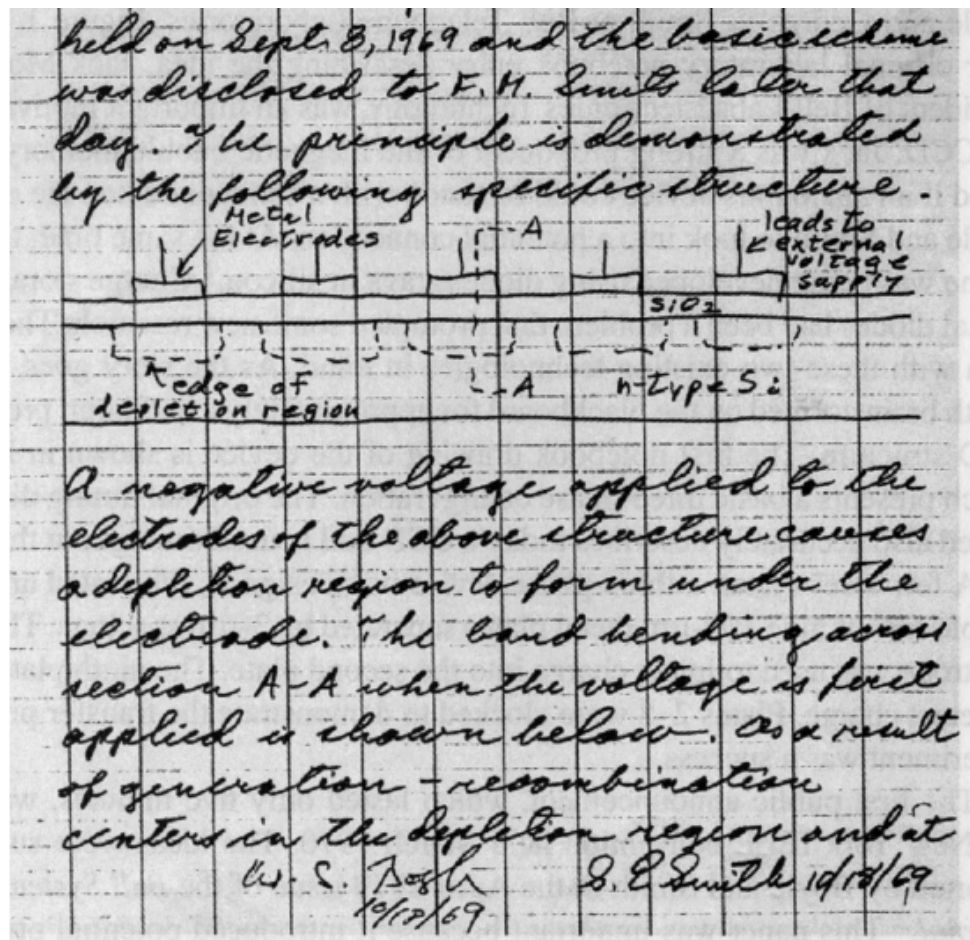 held on Sept. 8, 1969 and the basic scheme
was disclosed to F. M. Smits later that
day The principle is demonstrated
by the following specific structure
Metal
Electrodes
A
leads to
externa
voltage
supply
SiO2
edge of
depletion region
A
n-type Si
A negative voltage applied to the
electrodes of the above structure causes
a depletion region to form under the
electrode. The band bending across
section A-A when the voltage is first
applied is shown below. As a result
of generation - recombination
centers in the depletion region and at
W. S. Boyle
10/18/69
G E Smith 10/18/69